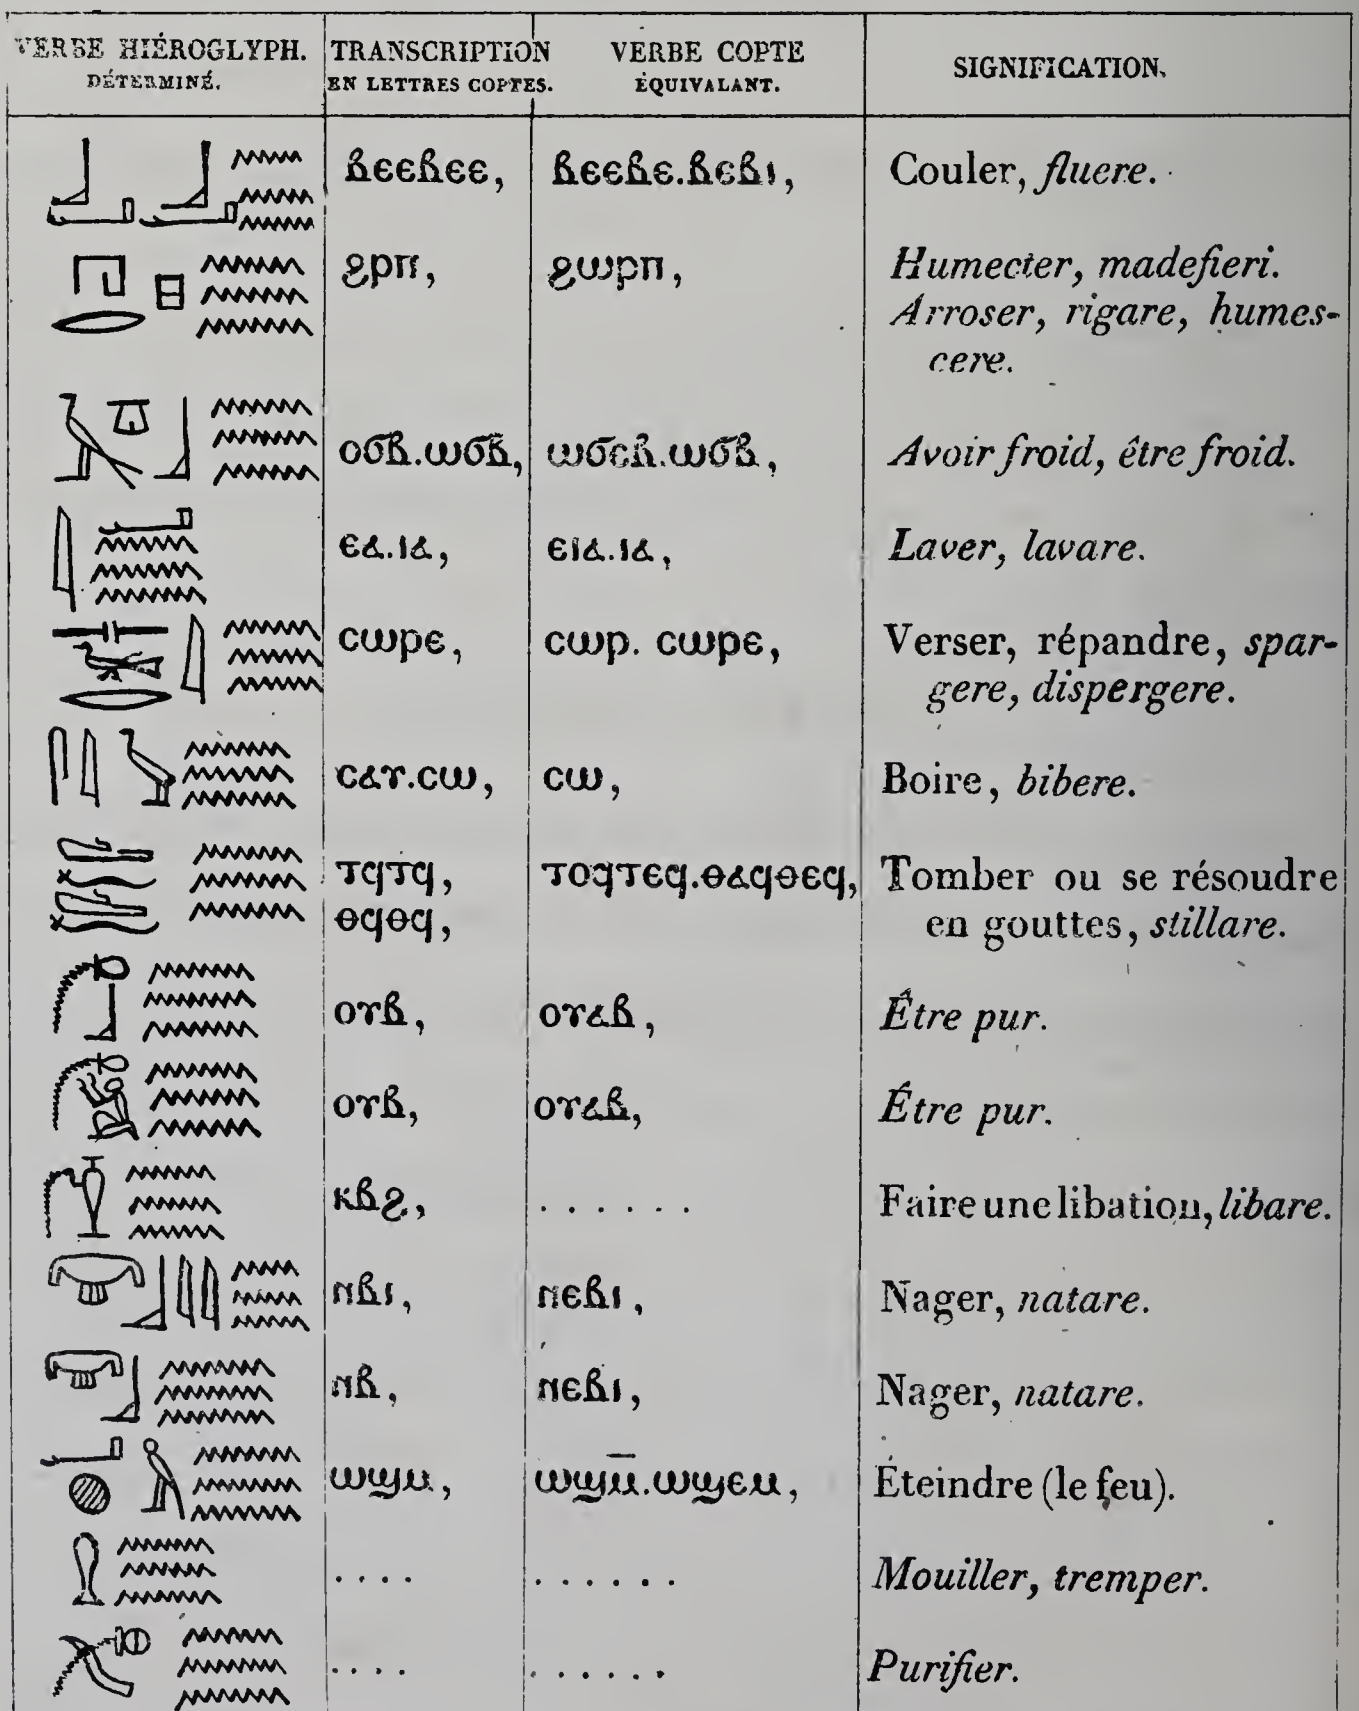 VERBE HIÉROGLYPH. TRANSCRIPTION VERBE COPTE SIGNIFICATION.
DÉTERMINÉ. EN LETTRES COPTES. ÉQUIVALANT.
ⲃⲉⲉⲃⲉⲉ, ⲃⲉⲉⲃⲉ.ⲃⲉⲃⲓ, Couler, fluere.
ϩⲣⲡ, ϩⲱⲣⲡ, Humecter, madefieri.
Arroser, rigare, humes-
cere.
ⲟϭⲃ.ⲱϭⲃ, ⲱϭⲉⲃ.ⲱϭⲃ, Avoir froid, être froid.
ⲉⲁ.ⲓⲁ, ⲉⲓⲁ.ⲓⲁ, Laver, lavare.
ⲥⲱⲣⲉ, ⲥⲱⲣ. ⲥⲱⲣⲉ, Verser, répandre, spar-
gere, dispergere.
ⲥⲁⲩ.ⲥⲱ, ⲥⲱ, Boire, bibere.
ⲧϥⲧϥ, ⲧⲟϥⲧⲉϥ.ⲑⲁϥⲑⲉϥ, Tomber ou se résoudre
ⲑϥⲑϥ, en gouttes, stillare.
ⲟⲩⲃ, ⲟⲩⲁⲃ, Être pur.
ⲟⲩⲃ, ⲟⲩⲁⲃ, Être pur.
ⲕⲃϩ, . . . . . . Faire une libation, libare.
ⲛⲃⲓ, ⲛⲉⲃⲓ, Nager, natare.
ⲛⲃ, ⲛⲉⲃⲓ, Nager, natare.
ⲱϣⲙ, ⲱϣⲙ̅.ⲱϣⲉⲙ, Éteindre (le feu).
. . . . . . . . . . Mouiller, tremper.
. . . . . . . . . . Purifier.